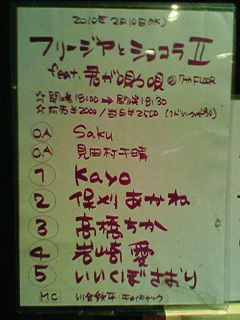 2010年 2月10日(水)
フリージアとショコラ II
feat. 君が唄う唄 @ 7th FLOOR
☆ 開場 18:00 → 開演 18:30
☆ 前売 ¥2000 / 当日 ¥2500 (1ドリンク
O.A Saku
O.A 見田村千晴
1 Kayo
2 保刈あかね
3 高橋ちか
4 岩崎 愛
5 いいくぼさおり
MC